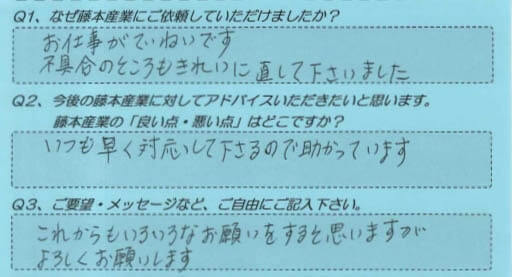 Q1、なぜ藤本産業にご依頼していただけましたか？
お仕事がていねいです
不具合のところもきれいに直して下さいました
Q2、今後の藤本産業に対してアドバイスいただきたいと思います。
藤本産業の「良い点・悪い点」はどこですか？
いつも早く対応して下さるので助かっています
Q3、ご要望・メッセージなど、ご自由にご記入下さい。
これからもいろいろなお願いをすると思いますが
よろしくお願いします